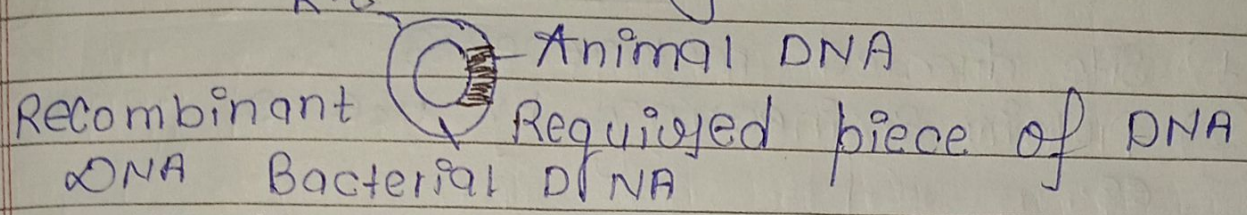 Animal DNA
Recombinant Required piece of DNA
DNA Bacterial DNA